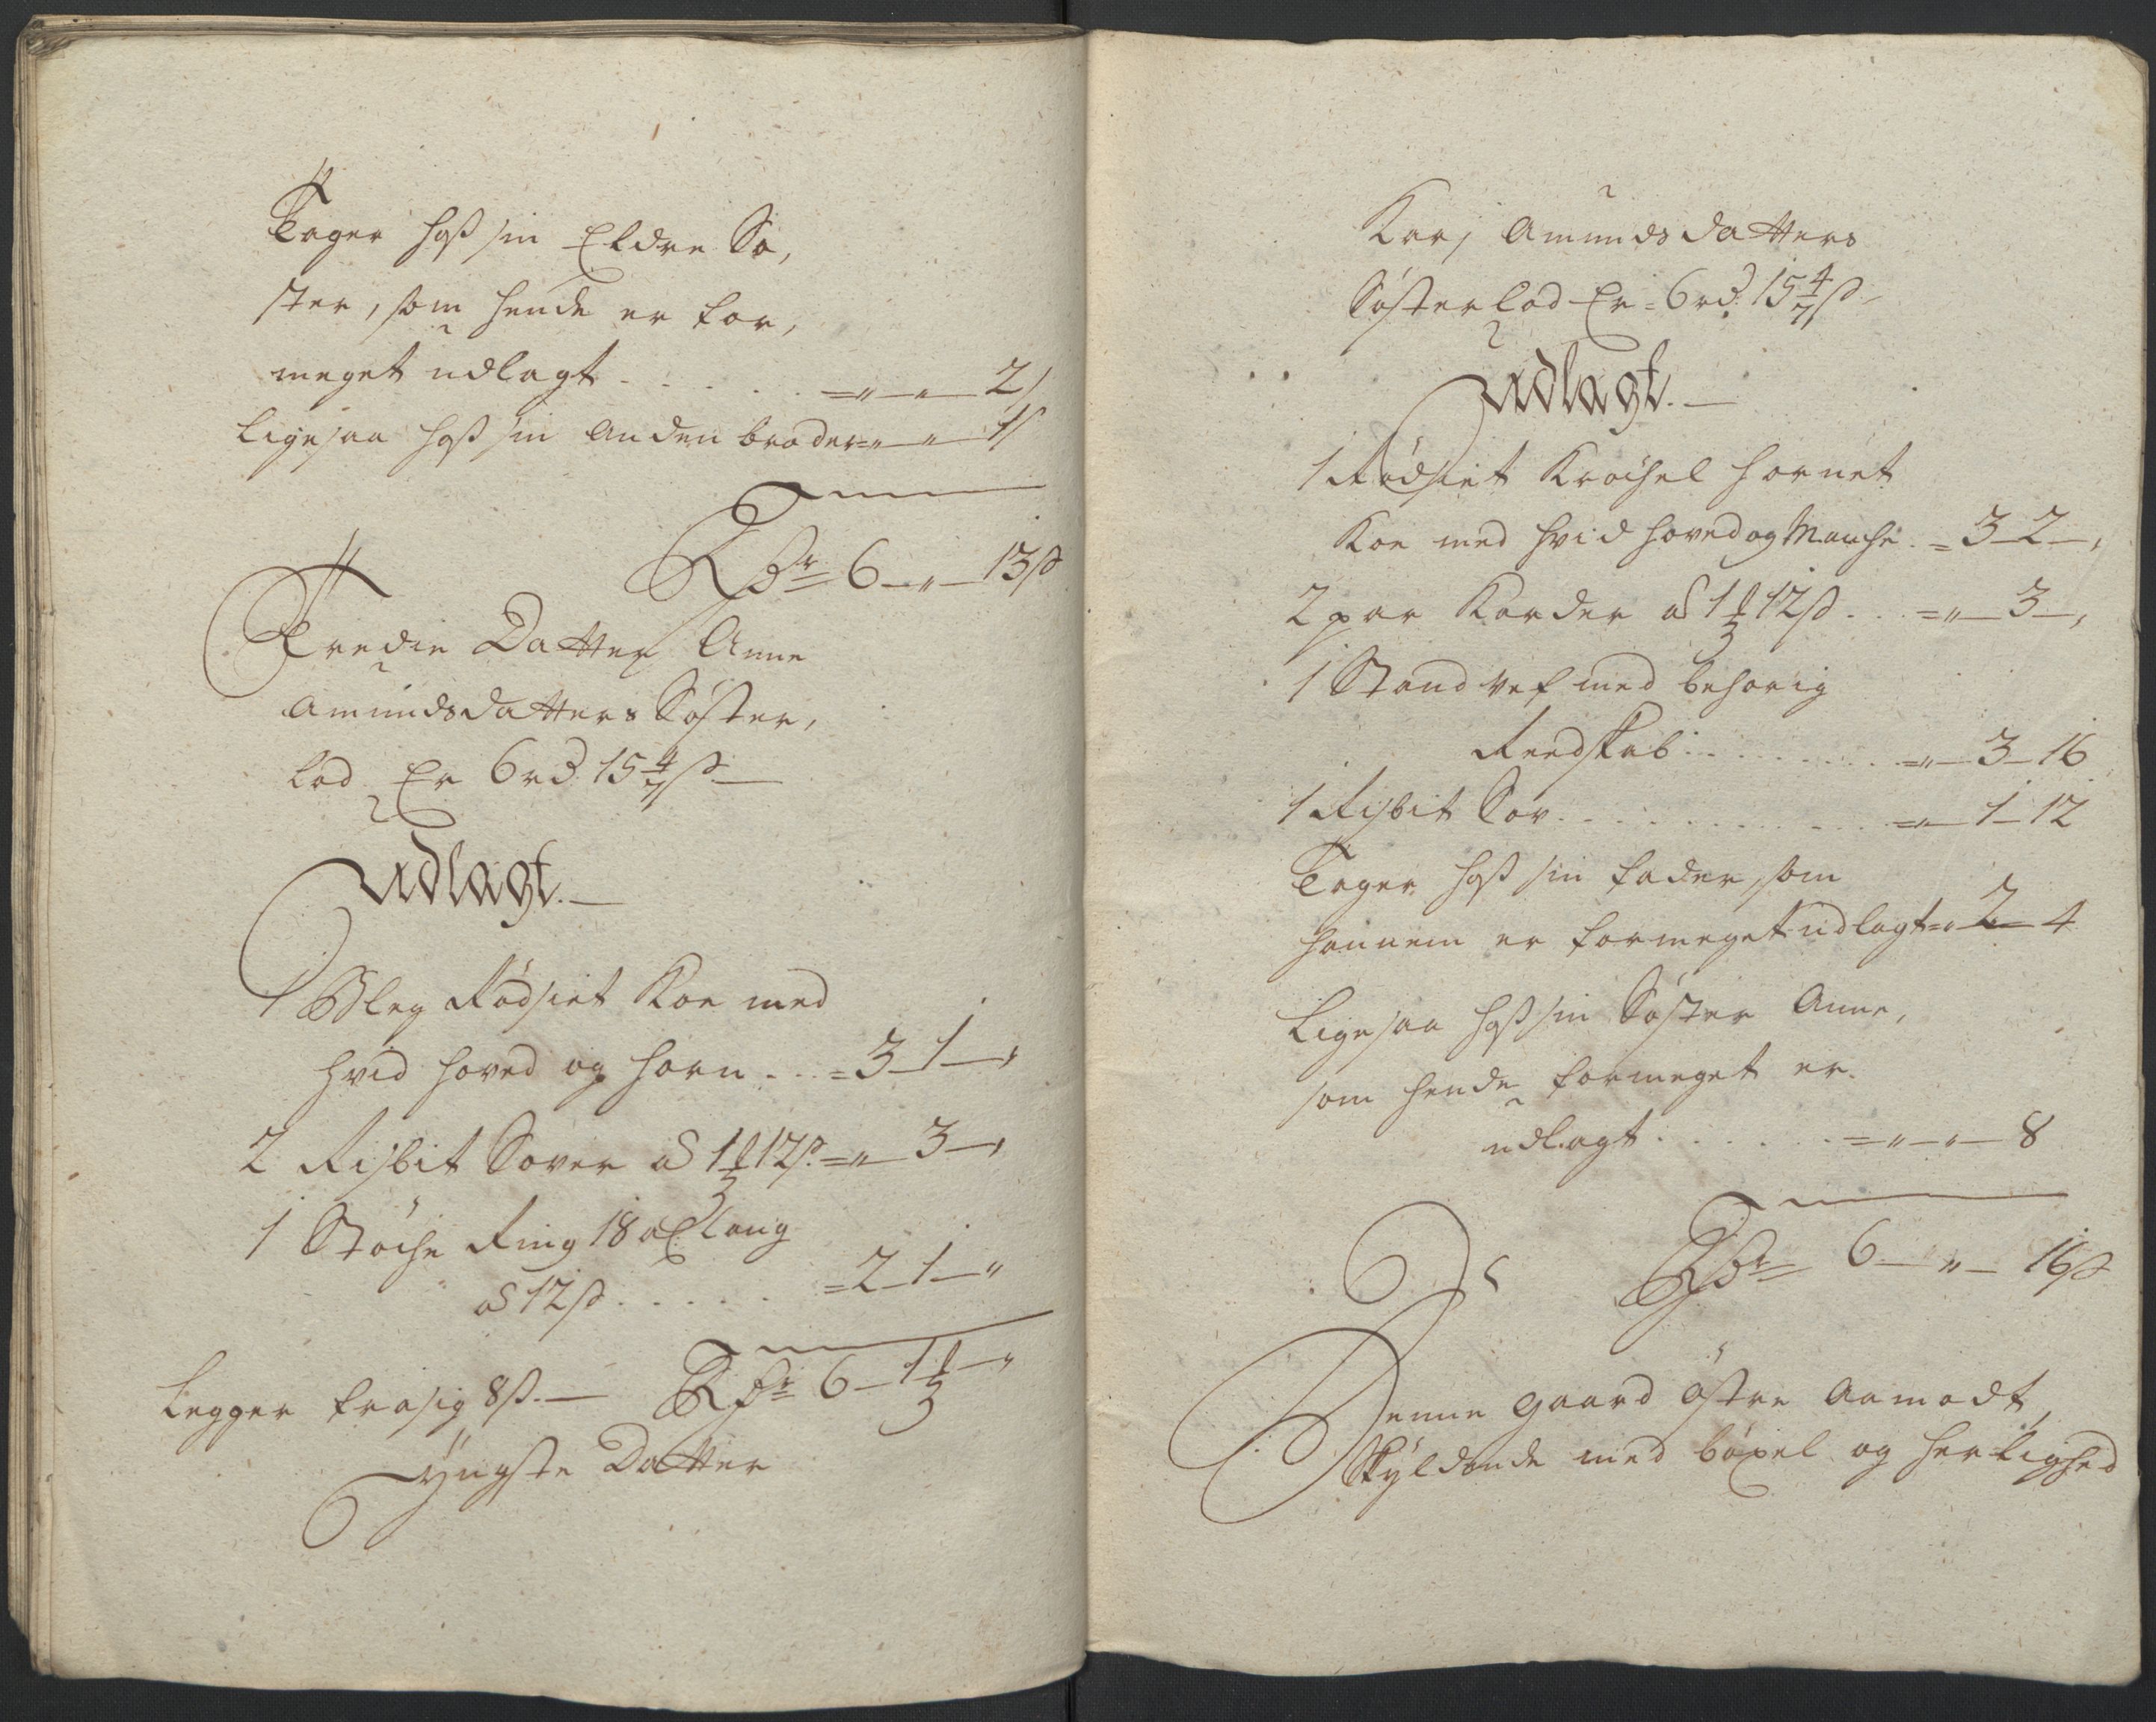 Tager hoß sin Eldre Sø,
ster, som hende er for,
meget udlagt . . . . . = " — " — 2
Ligesaa hoß sin Anden broder = " — " — 1
Rdr 6 — " — 13 ß
Tredie Datter Anne
Amundsdatters Søster,
lod Er 6 rd. 15 4/7 ß —
Udlagt. —
1 Bleg Rødsiet Koe med
hvid hoved og horn . . . = 3 — 1 — ,
2 Risbit Sover a 1 ß 12 ß = " — 3 — ,
1 Støche Ring 18 al. lang
a 12 ß . . . . . . = 2 — 1 — "
Legger frasig 8 ß. — Rdr 6 — 1 — "
yngste Datter
Karj Amundsdatters
Søsterlod Er = 6 rd. 15 4/7 ß
Udlagt. —
1 Rødsiet Krochel hornet
Koe med hvid hoved og Manche . = 3 — 2 — ,
2 par Karder a 1 ß 12 ß . . . = " — 3 — ,
1 Stand vef med behørig
Reedskab . . . . . . . . = " — 3 — 16
1 Risbit Sov . . . . . . . . . . = " — 1 — 12
Tager hoß sin fader, som
hannem er formeget udlagt = " 2 — 4
Ligesaa hoß sin Søster Anne,
som hende formeget er
udlagt . . . . . . . = " — " — 8
Rdr 6 — " — 16 ß
Denne Gaard østre Aamodt,
Skyldende med böxel og herlighed